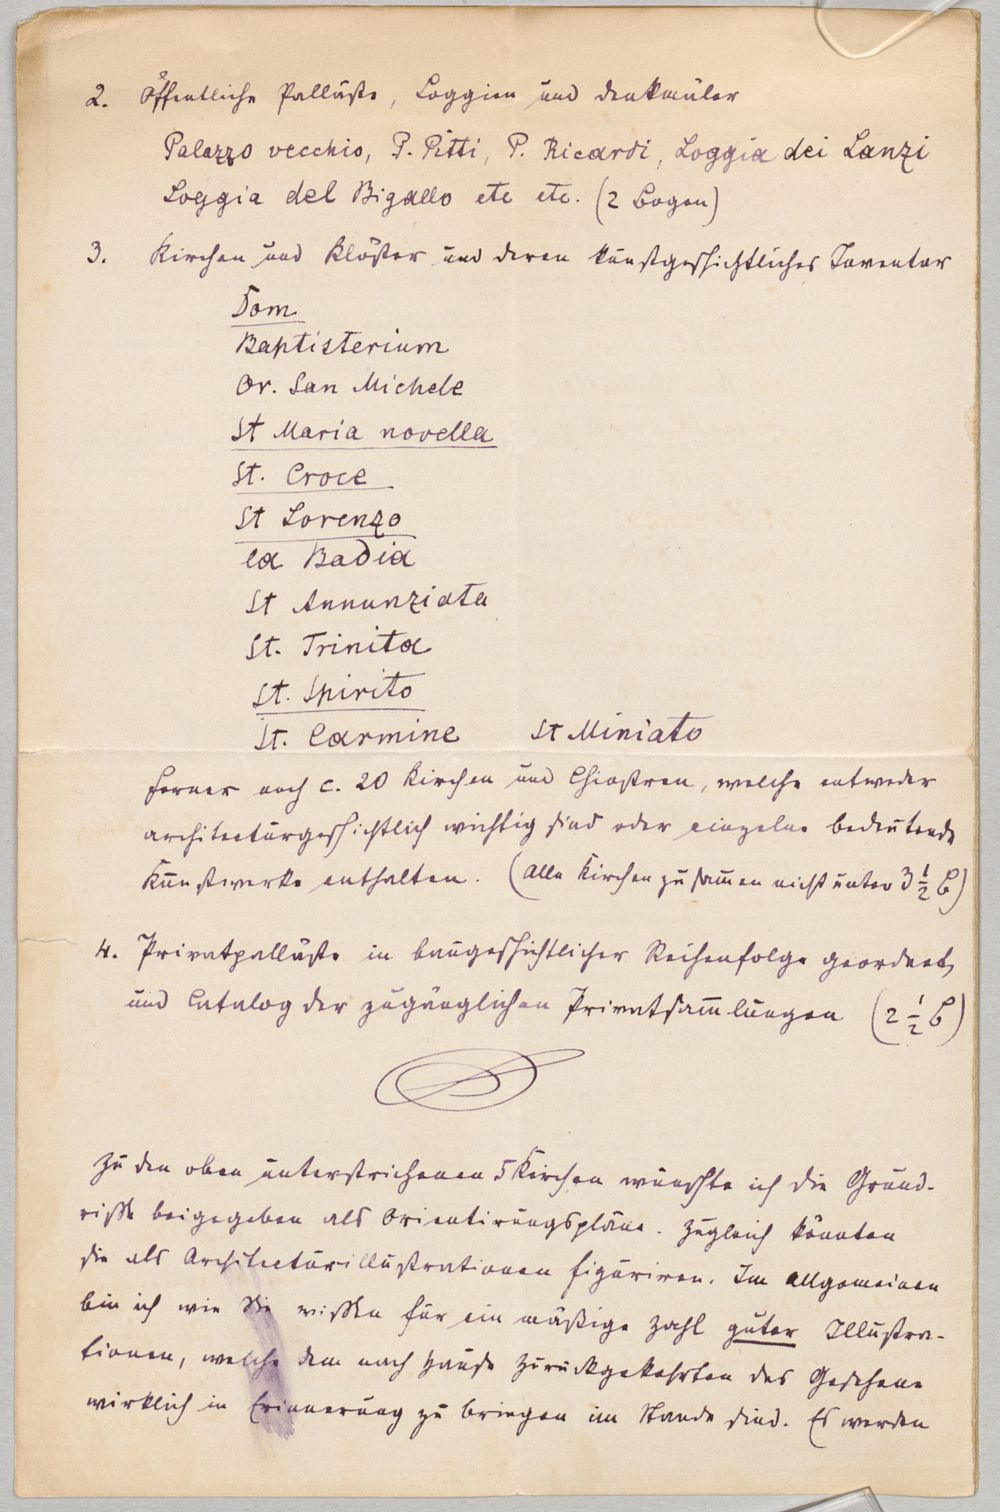 2. Öffentliche Palläste, Loggien und Denkmäler
Palazzo vecchio, P. Pitti, P. Ricardi, Loggia dei Lanzi
Loggia del Bigallo etc etc. (2 Bogen)
3. Kirchen und Klöster und deren kunstgeschichtliches Inventar
Dom
Baptisterium
Or. San Michele
St Maria novella
St. Croce
St Lorenzo
la Badia
St Annunziata
St. Trinita
St. Spirito
St. Carmine St Miniato
Ferner noch c. 20 Kirchen und Chiostren, welche entweder
architecturgeschichtlich wichtig sind oder einzelne bedeutende
Kunstwerke enthalten. (Alle Kirchen zusammen nicht unter 3 1/2 B)
4. Privatpalläste in baugeschichtlicher Reihenfolge geordnet,
und Catalog der zugänglichen Privatsammlungen (2 1/2 B)
Zu den oben unterstrichenen 5 Kirchen wünschte ich die Grund-
risse beigegeben als Orientirungspläne. Zugleich könnten
sie als Architecturillustrationen figuriren. Im Allgemeinen
bin ich wie Sie wissen für ein mäßige Zahl guter Illustra-
tionen, welche dem nach Hause Zurückgekehrten das Gesehene
wirklich in Erinnerung zu bringen im Stande sind. Es werden